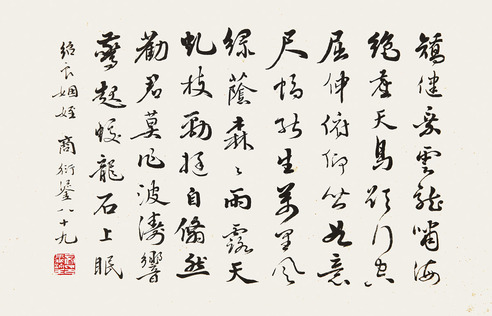 矯健乘雲龍嘯海
絕塵天馬欲行空
屈伸俯仰皆如意
尺幅能生萬里風
綠蔭森〻雨露天
虬枝勁挺自翛然
勸君莫作波濤響
驚起蛟龍石上眠
紹良姻姪 商衍鎏八十九